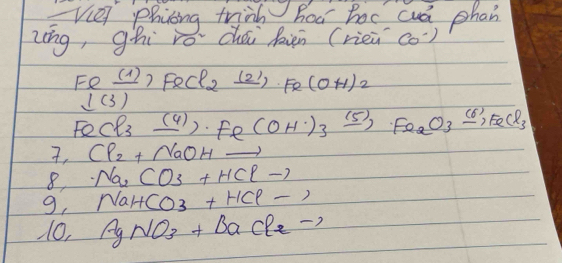 Viết phương trình hoá học của phản
ứng, ghi rõ điều kiện (nếu có)
Fe (1)→ FeCl2 (2)→ Fe(OH)2
↓(3)
FeCl3 (4)→ Fe(OH)3 (5)→ Fe2O3 (6)→ FeCl3
7, Cl2 + NaOH →
8, Na2CO3 + HCl →
9, NaHCO3 + HCl →
10, AgNO3 + BaCl2 →